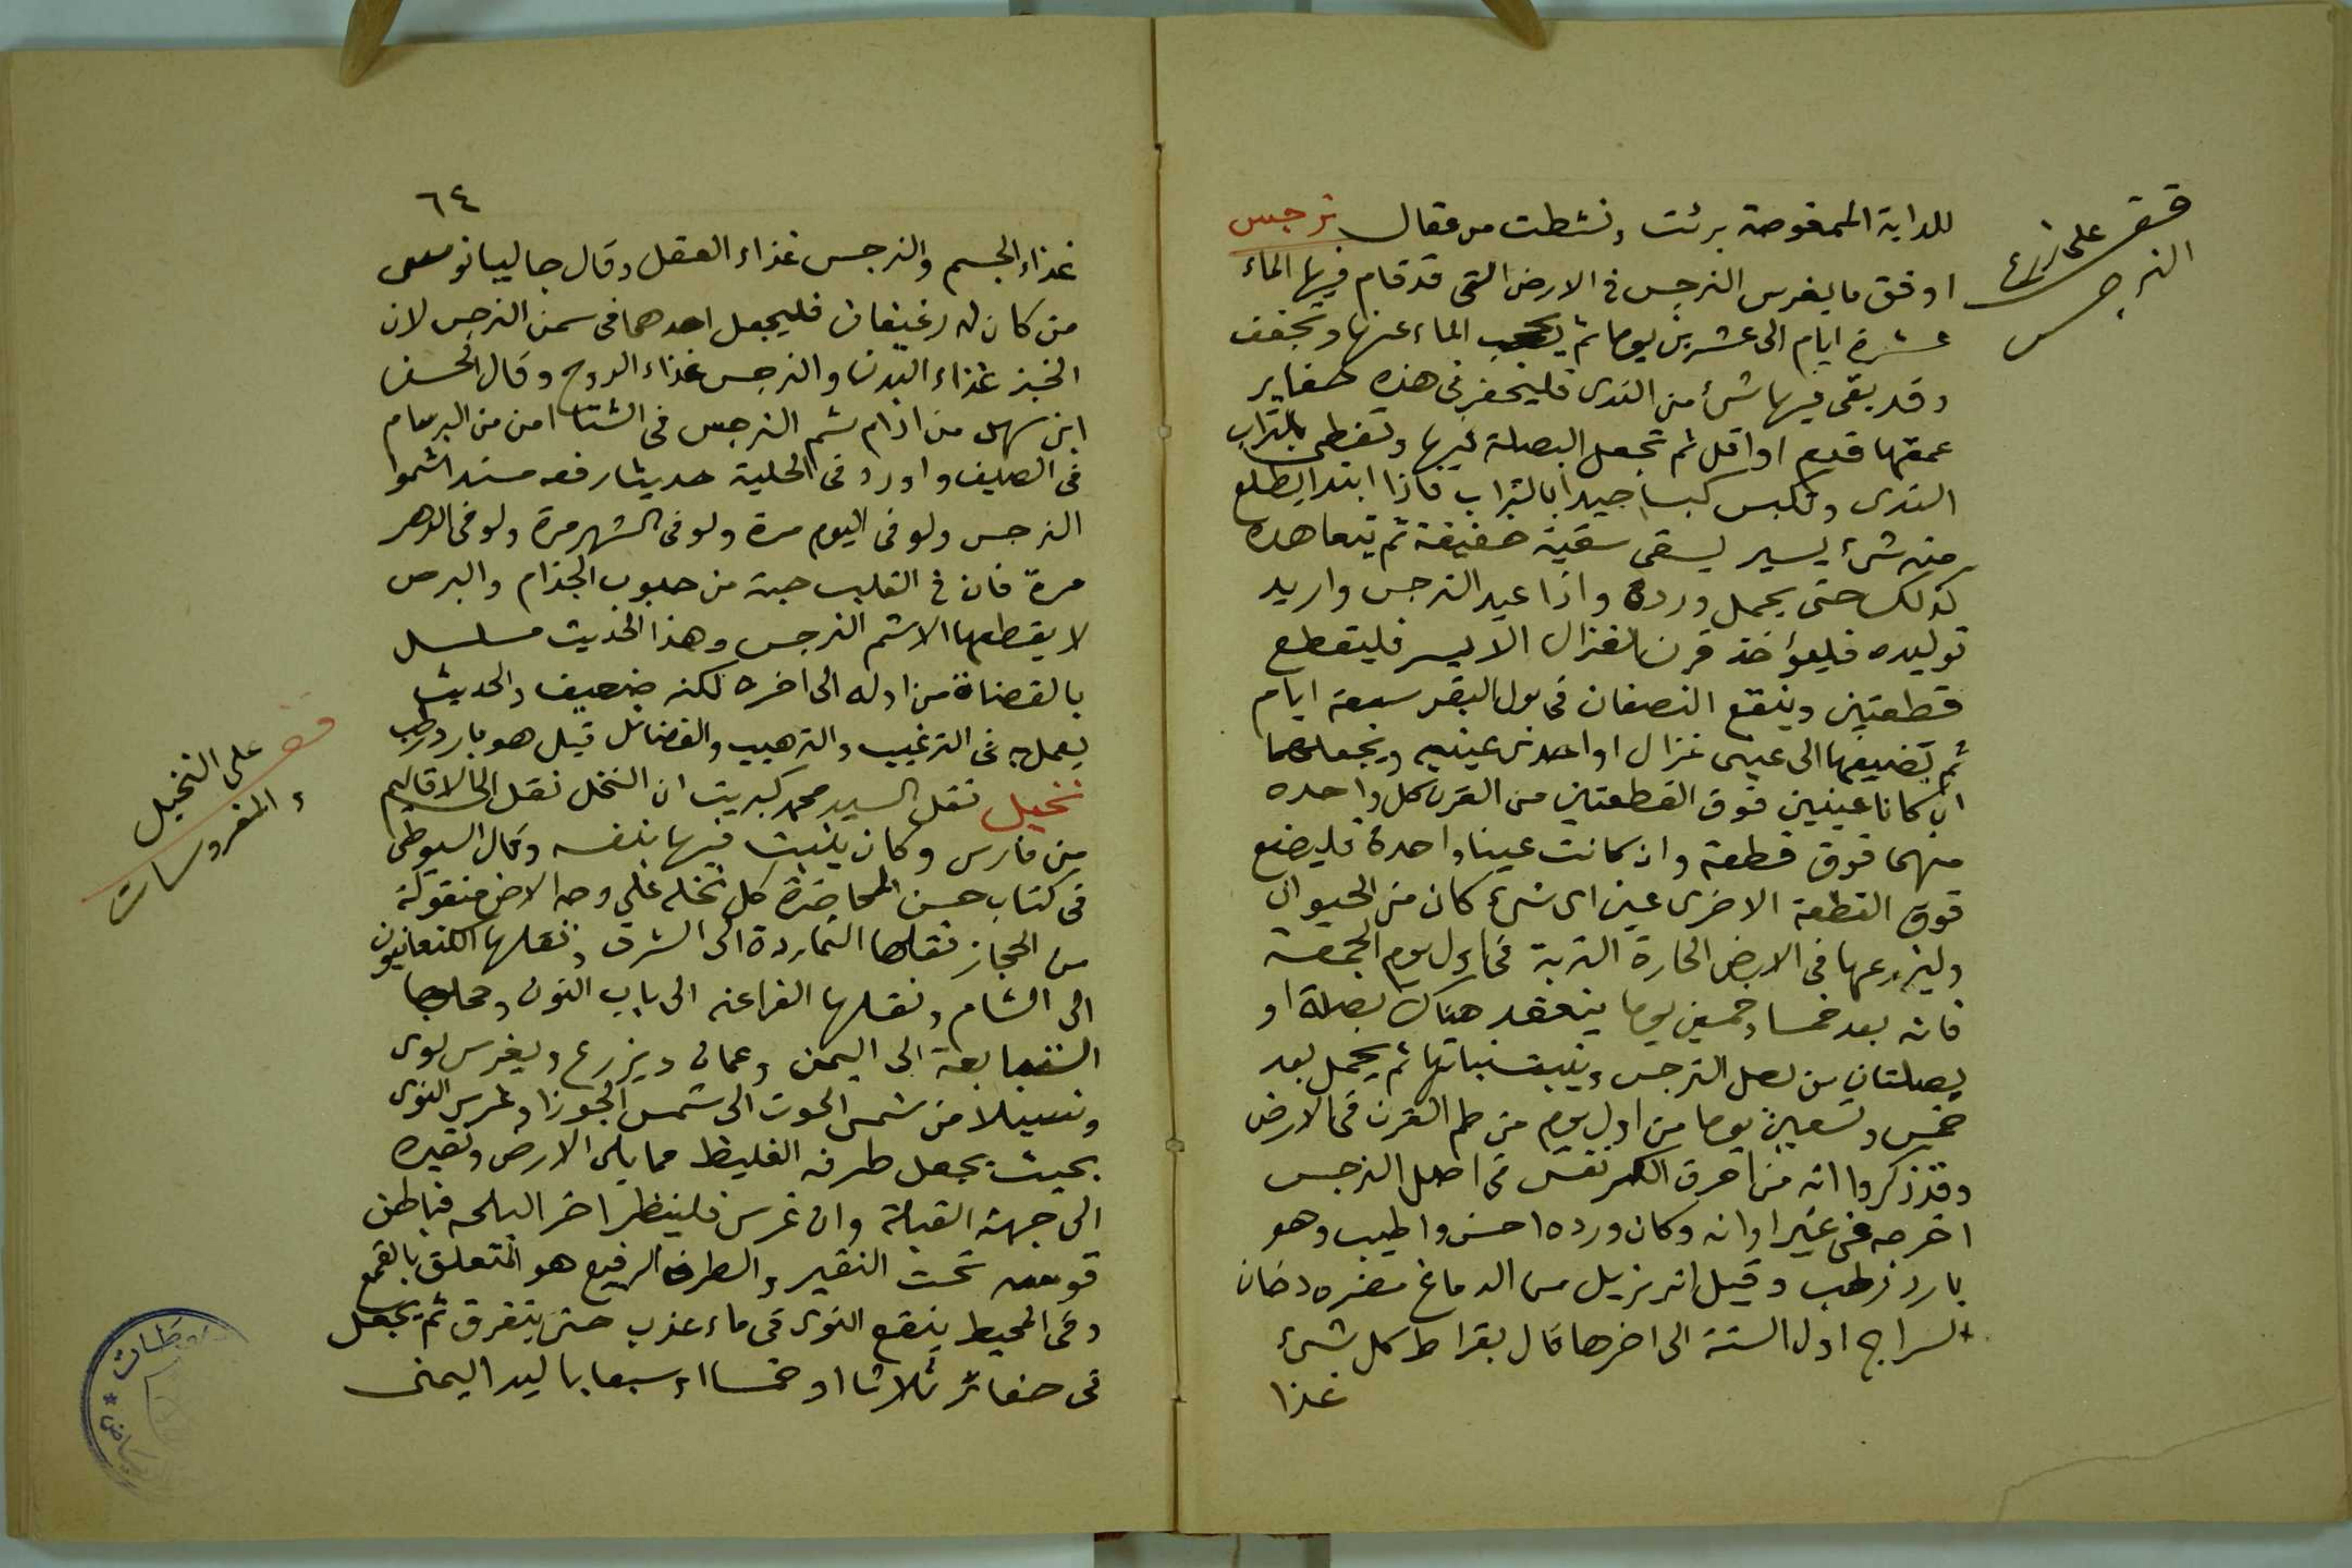 للدابة الممغوصة برئت ونشطت من مقال نرجس
اوفق ما يغرس النرجس فى الارض التى قد قام فيها الماء
عشرة ايام الى عشرين يوما ثم الماء عنها وتجفف
وقد بقى فيها شئ من الندى فليحفر فى هذه حفاير
عمقها قدم او اقل ثم تجعل البصلة فيها وتغطى بالتراب
الندى وتكبس كبسا جيدا بالتراب فاذا ابتدا يطلع
منه شئ يسير يسقى سقية خفيفة ثم يتعاهده
كذلك حتى يحمل ورده واذا عيد النرجس واريد
توليده فليؤخذ قرن الغزال الايسر فليقطع
قطعتين وينقع النصفان فى بول البقر سبعة ايام
ثم تضيفها الى عينى غزال او احدى عينيه ويجعلهما
ان كانا عينين فوق القطعتين من القرن كل واحده
منهما فوق قطعة وان كانت عينا واحدة فليضع
فوق القطعة الاخرى عين اى شئ كان من الحيوان
وليزرعها فى الارض الحارة التربة فى اول يوم الجمعة
فانه بعد خمسا وخمسين يوما ينعقد هناك بصلة او
بصلتان من بصل النرجس وينبت نباتها ثم يحمل بعد
خمس وتسعين يوما من اول يوم من طم القرن فى الارض
وقد ذكروا انه من احرق فى اصل النرجس
اخرجه فى غير اوانه وكان ورده احسن واطيب وهو
بارد رطب وقيل انه يزيل من الدماغ مضره دخان
السراج اول السنة الى اخرها قال بقراط كل شئ
غذا
قف على زرع
النرجس
٦٤
غذاء الجسم والنرجس غذاء العقل وقال جاليانوس
من كان له رغيفان فليجعل احدهما فى سمن النرجس لان
الخبز غذاء البدن والنرجس غذاء الروح وقال الحسن
ابن سهل من ادام شم النرجس فى الشتا امن من البرسام
فى الصيف واورد فى الحلية حديثا رفعه مسندا شموا
النرجس ولو فى اليوم مرة ولو فى الشهر مرة ولو فى الدهر
مرة فان فى القلب حبة من حبوب الجذام والبرص
لا يقطعها الا شم النرجس وهذا الحديث مسلسل
بالقضاة من اوله الى اخره لكنه ضعيف والحديث
يعمل به فى الترغيب والترهيب والفضائل قيل هو بارد رطب
نخيل نقل السيد محمد كبريت ان النخل نقل الى الاقاليم
من فارس وكان ينبت فيها بنفسه وقال السيوطى
فى كتاب حسن المحاضرة كل نخله على وجه الارض منقولة
من الحجاز نقلها النماردة الى الشرق ونقلها الكنعانيون
الى الشام ونقلها الفراعنه الى باب النون وحملها
التبابعة الى اليمن وعمان ويزرع ويغرس نوى
من شمس الحوت الى شمس الجوزا وغرس النوى
بحيث يجعل طرفه الغليظ مما يلى الارض ونقيره
الى جهة القبلة وان غرس فلينظر اخر البلحه فباطن
تحت النقير والطرف الرفيع هو المتعلق بالقمع
وفى المحيط ينقع النوى فى ماء عذب حتى يتفرق ثم يجعل
فى حفائر ثلاثا او خمسا او سبعا باليد اليمنى
قف على النخيل
والمغروسات